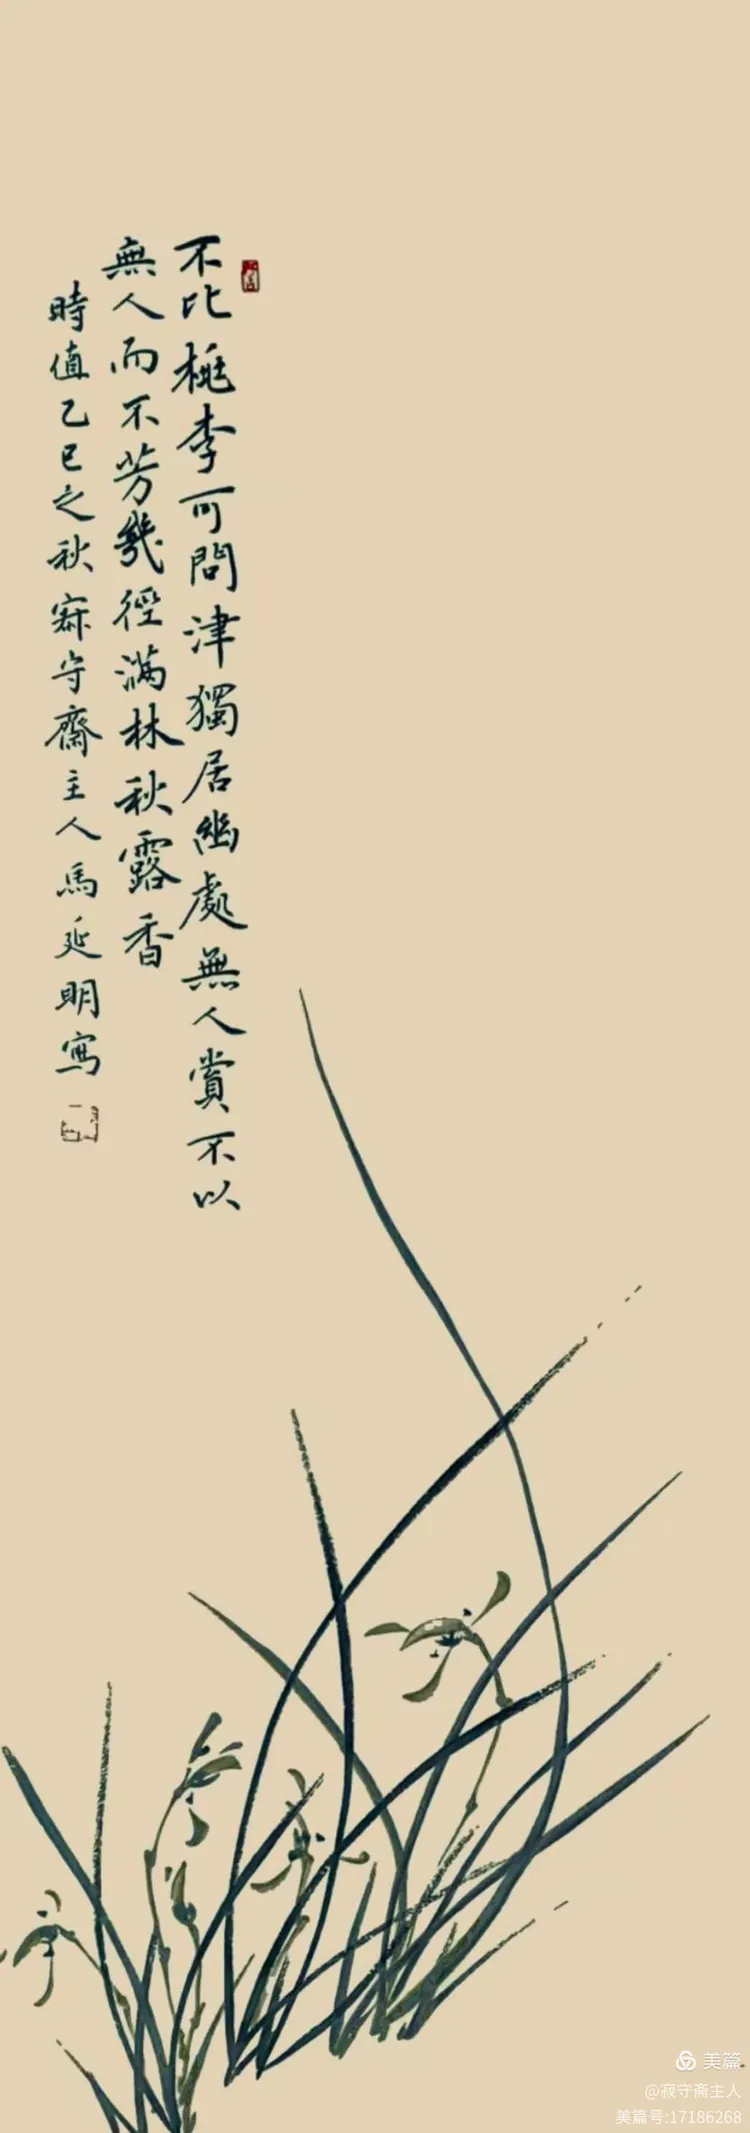 不比桃李可問津獨居幽處無人賞不以
無人而不芳幾徑滿林秋露香
時值乙巳之秋寂守齋主人馬延明寫
美篇
@寂守斋主人
美篇号:17186268